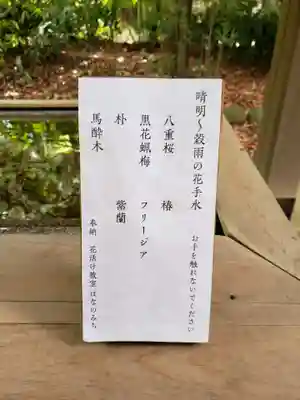 晴明～穀雨の花手水
お手を触れないでください
八重桜　椿
黒花蝋梅　フリージア
朴　紫蘭
馬酔木
奉納　花活け教室 はなのみち